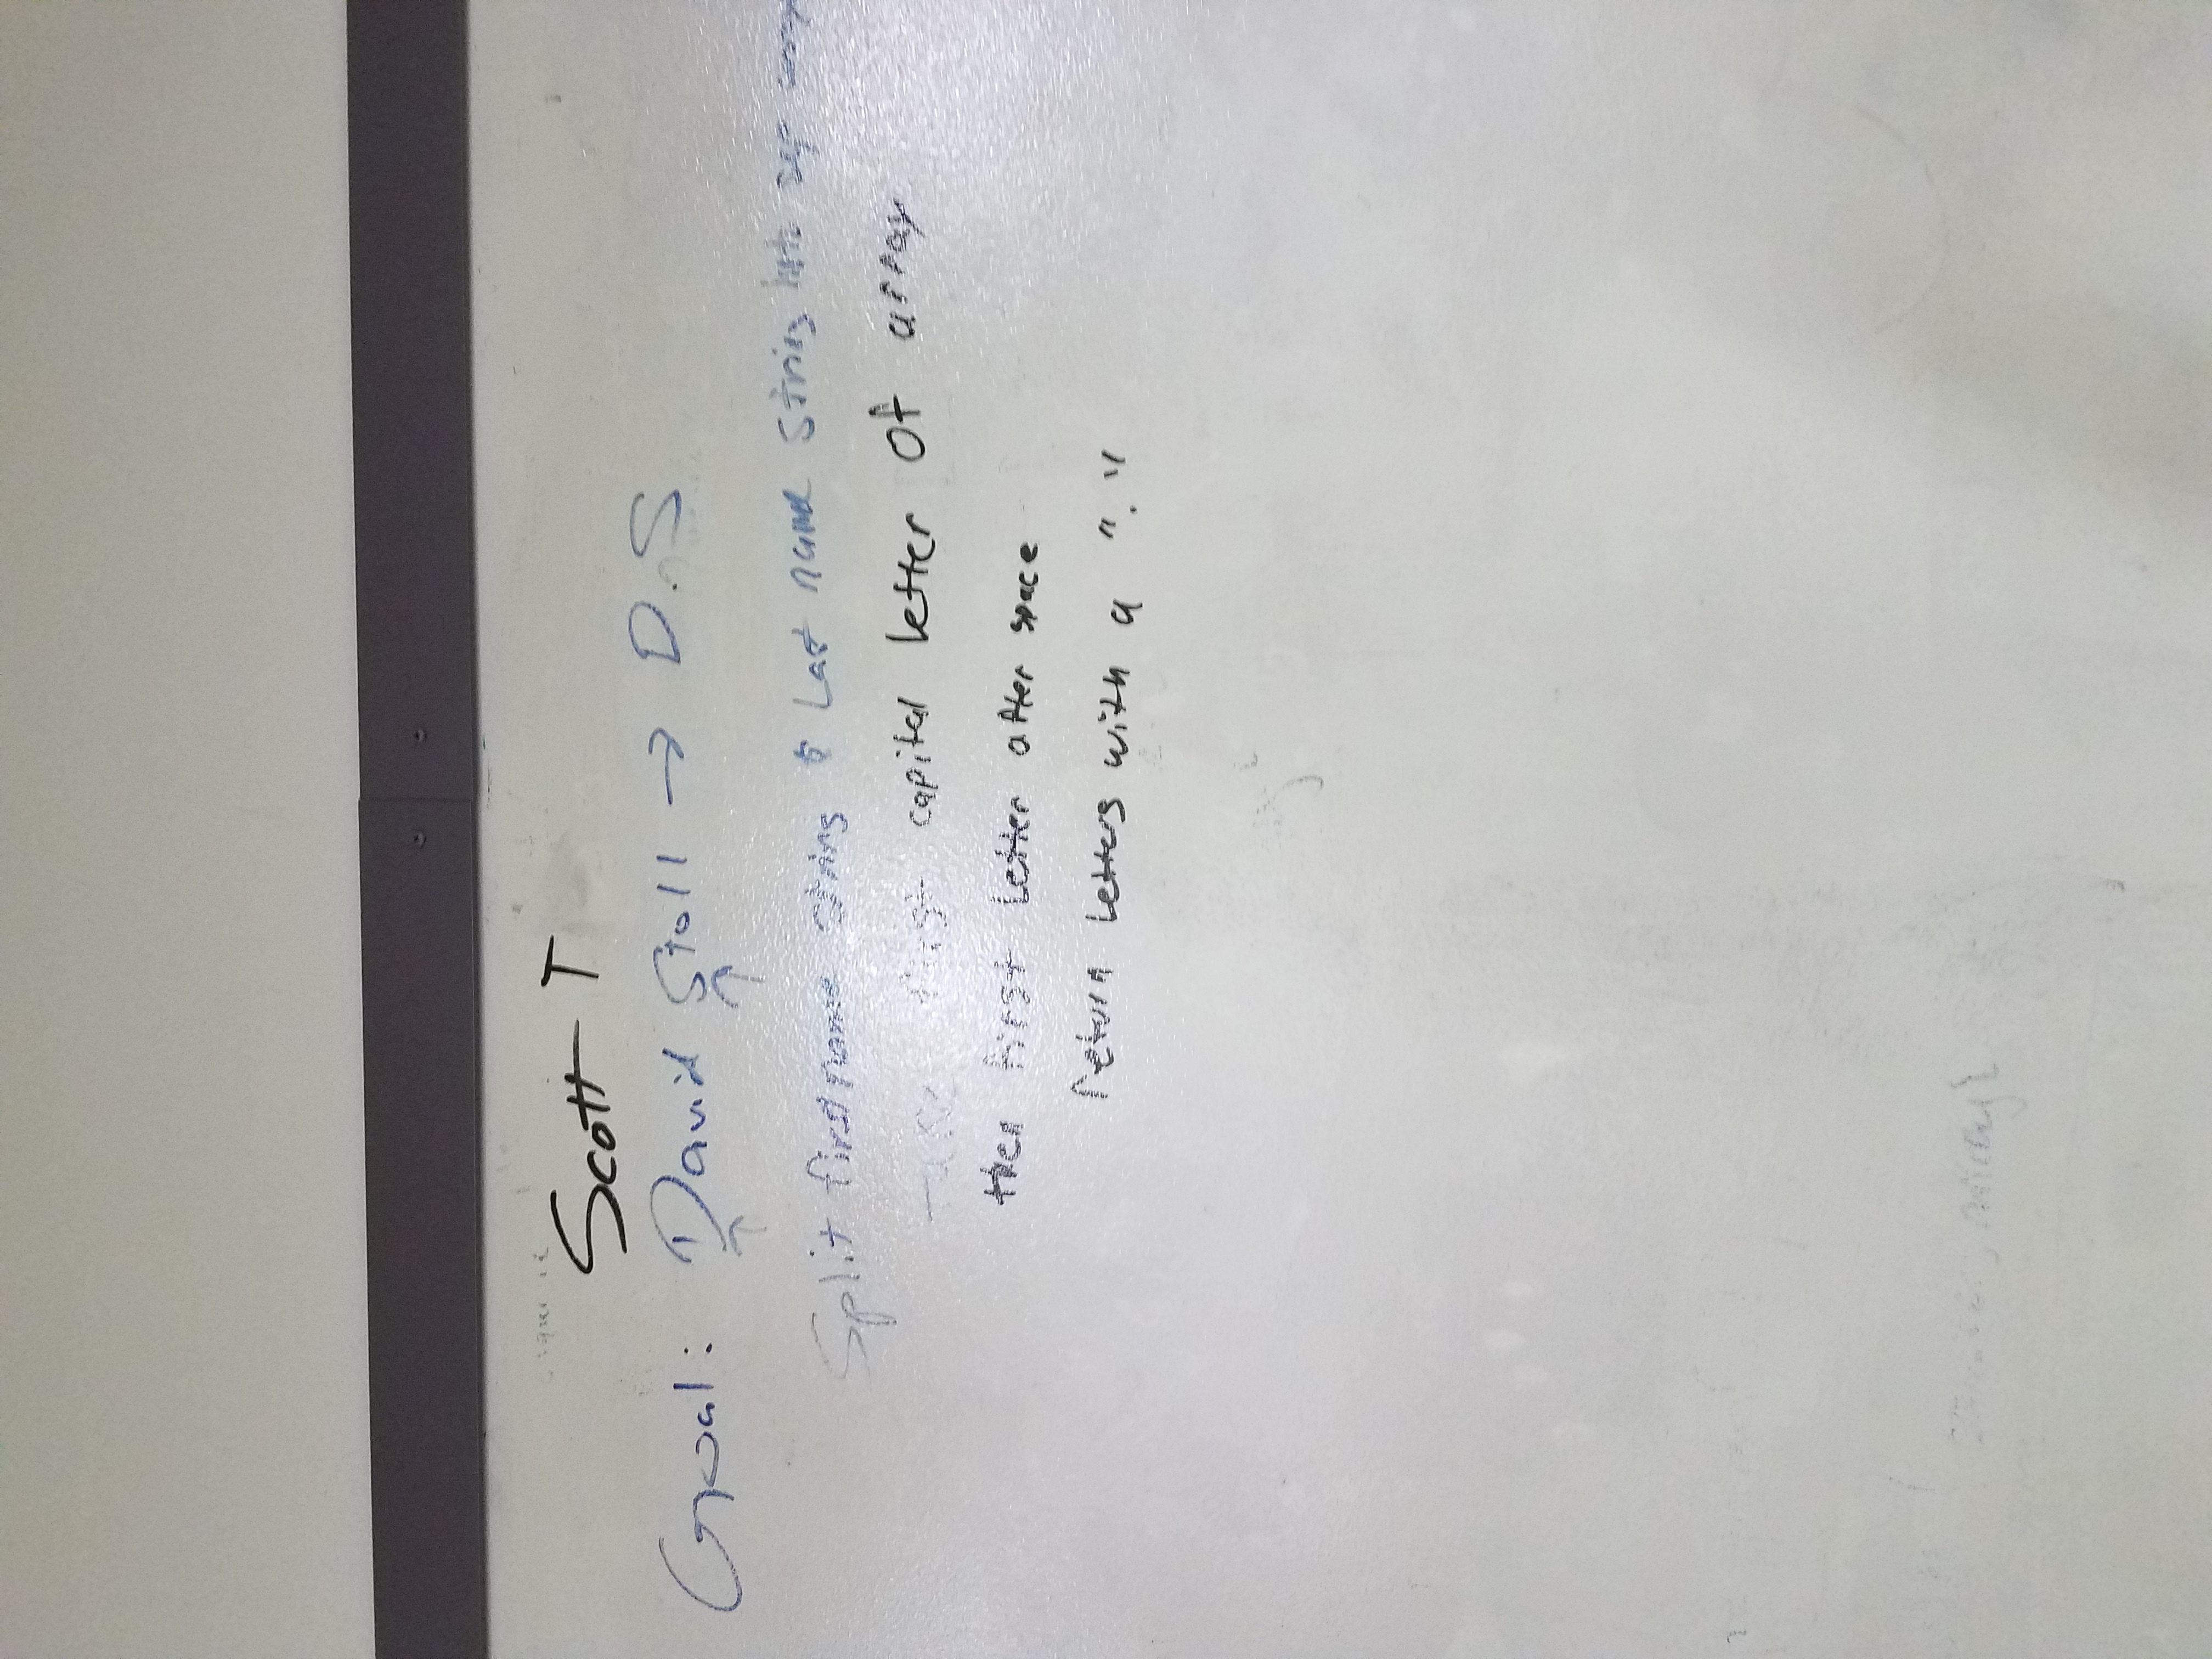 Scott T
Goal: David Stoll → D.S
↑ ↑
Split first name string & Last name string into sep array
Take first capital letter of array
then first letter after space
return letters with a "."
array